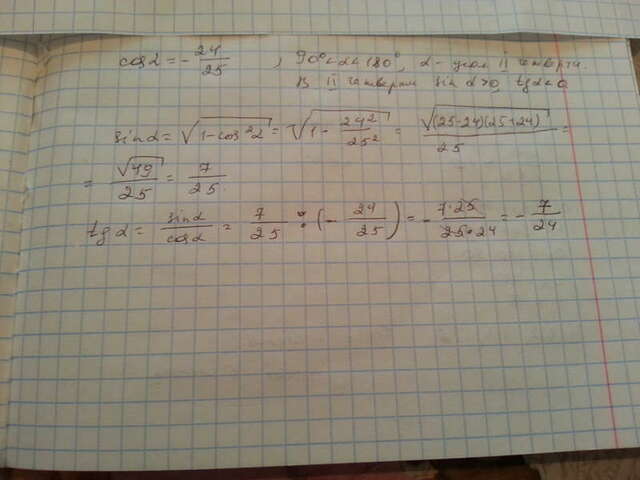 cosα = -24/25, 90°<α<180°, α - угол II четверти.
В II четверти sin α>0, tgα<0
sinα = √(1-cos²α) = √(1 - 24²/25²) = √((25-24)(25+24))/25 =
= √49/25 = 7/25
tgα = sinα/cosα = 7/25 : (-24/25) = -7·25/25·24 = -7/24